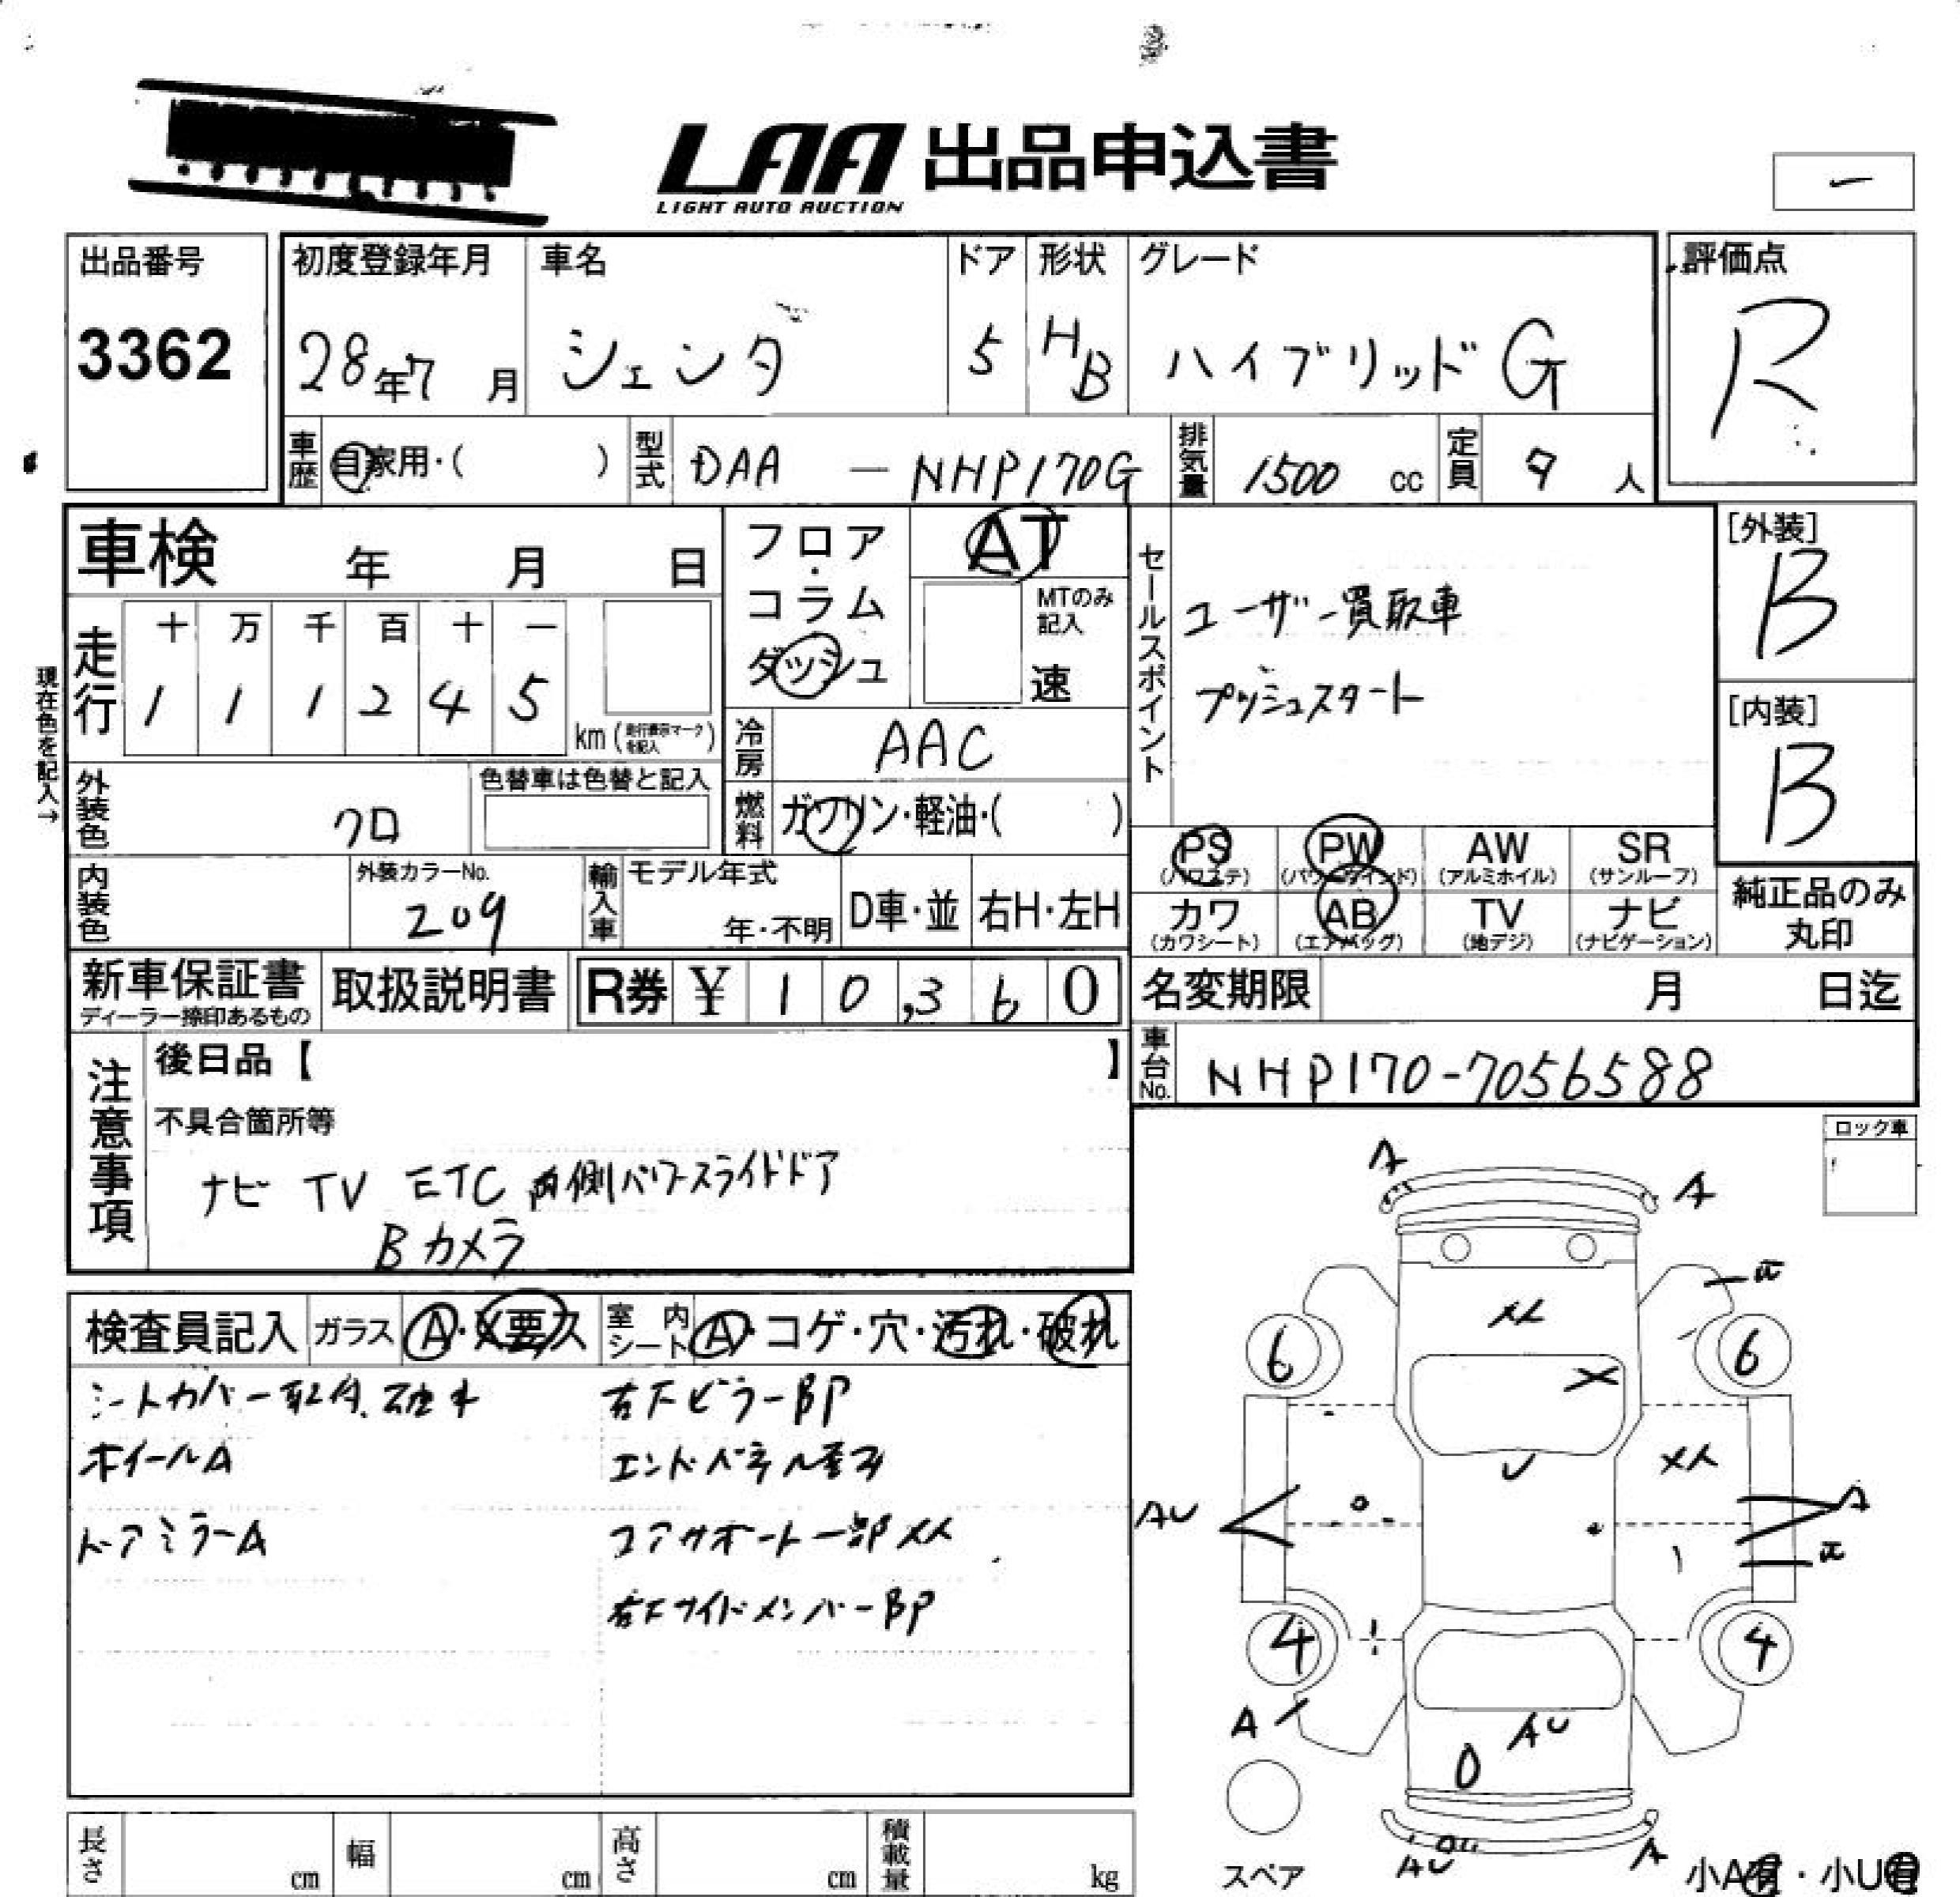 LAA 出品申込書
LIGHT AUTO AUCTION
出品番号
3362
初度登録年月
28年7月
車名
シエンタ
ドア
5
形状
HB
グレード
ハイブリッドG
評価点
R
車歴
自家用・( )
型式
DAA - NHP170G
排気量
1500 cc
定員
7 人
車検 年 月 日
フロア・コラム
ダッシュ
AT
MTのみ記入
速
セールスポイント
ユーザー買取車
プッシュスタート
[外装]
B
[内装]
B
現在色を記入→
走行
十 万 千 百 十 一
1 1 1 2 4 5
km (走行表示マークを記入)
冷房
AAC
外装色
クロ
色替車は色替と記入
燃料
ガソリン・軽油・( )
PS (パワステ)
PW (パワーウインド)
AW (アルミホイル)
SR (サンルーフ)
内装色
外装カラーNo.
209
輸入車
モデル年式
年・不明
D車・並
右H・左H
カワ (カワシート)
AB (エアバッグ)
TV (地デジ)
ナビ (ナビゲーション)
純正品のみ丸印
新車保証書
ディーラー捺印あるもの
取扱説明書
R券 ¥ 10,360
名変期限 月 日迄
注意事項
後日品【 】
車台No.
NHP170-7056588
不具合箇所等
ナビ TV ETC 両側パワースライドドア
Bカメラ
ロック車
検査員記入
ガラス
A・X要ス
室内シート
A・コゲ・穴・汚れ・破れ
シートカバー取付
右Fピラー BP
ホイールA
エンドパネル
ドアミラーA
コアサポート一部メX
右Fサイドメンバー BP
A
A
メX
6
6
X
U
メX
AU
A
4
4
A
AU
AU
A
スペア
小A有・小U有
長さ cm
幅 cm
高さ cm
積載量 kg